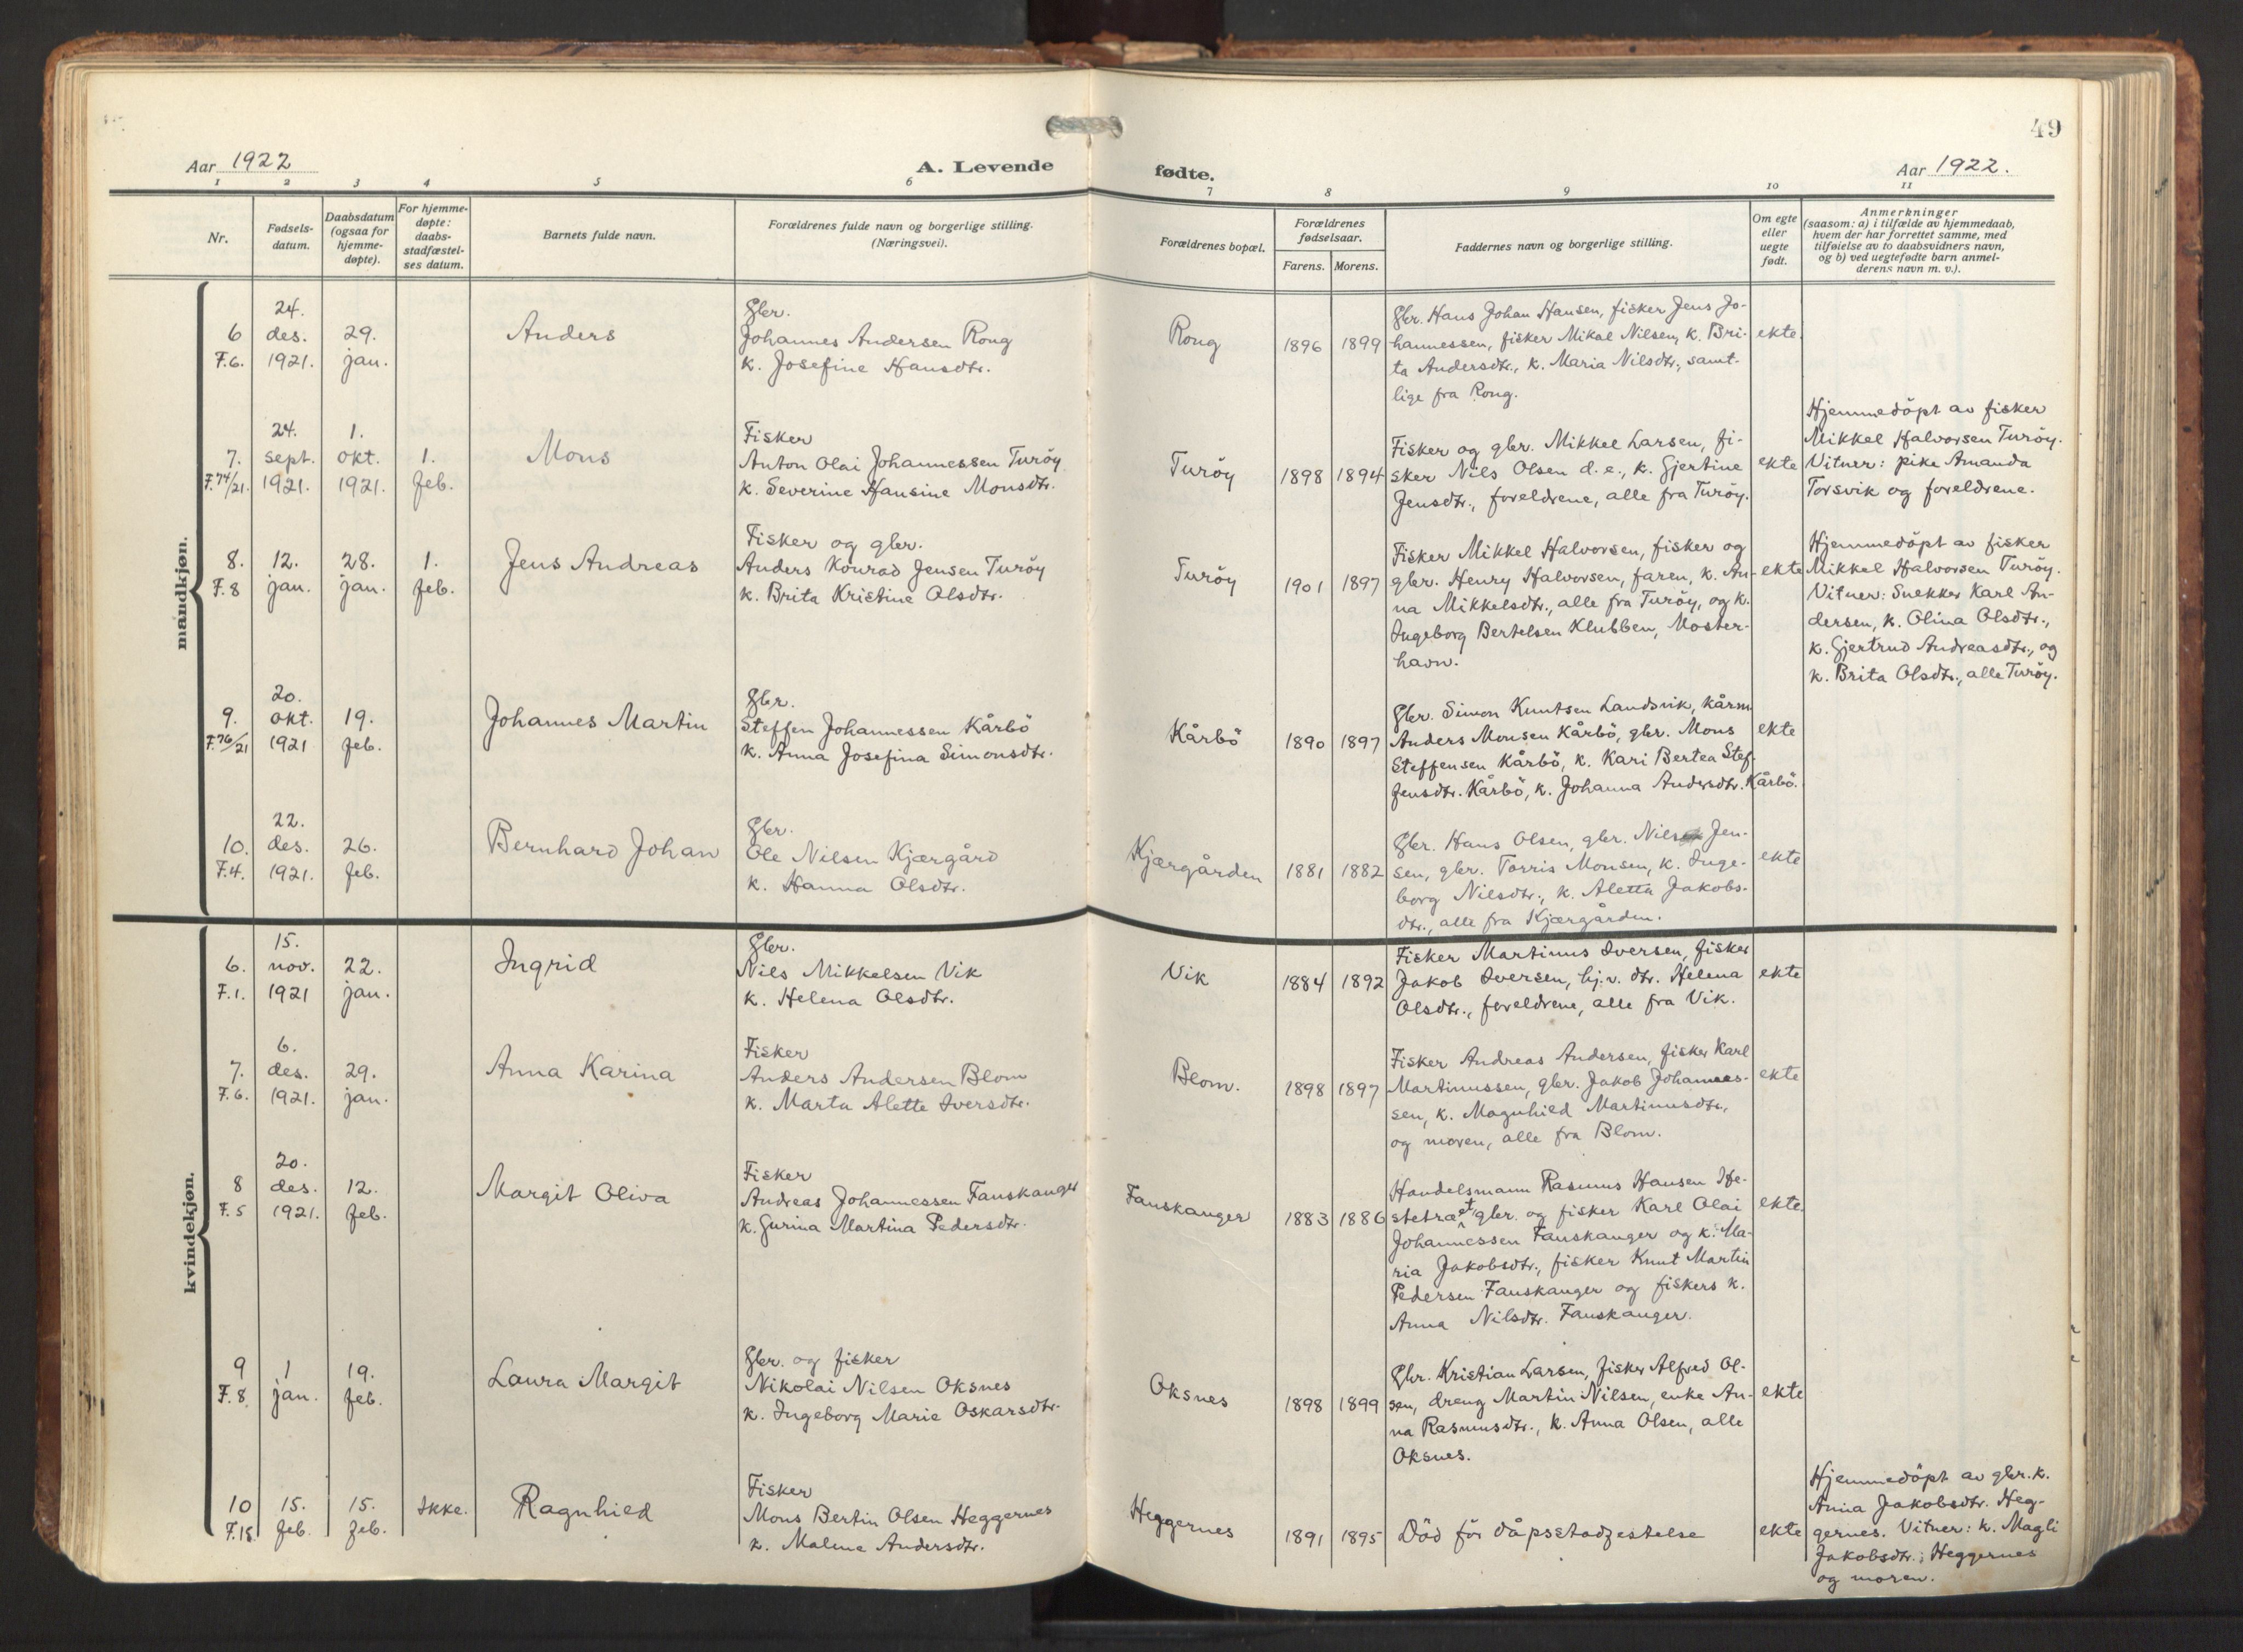 49
Aar 1922
A. Levende
fødte.
Aar 1922.
1 2 3 4 5 6 7 8 9 10 11
Nr.
Fødsels-
datum.
Daabsdatum
(ogsaa for
hjemme-
døpte).
For hjemme-
døpte:
daabs-
stadfæstel-
ses datum.
Barnets fulde navn.
Forældrenes fulde navn og borgerlige stilling.
(Næringsvei).
Forældrenes bopæl.
Forældrenes
fødselsaar.
Farens. Morens.
Faddernes navn og borgerlige stilling.
Om egte
eller
uegte
født.
Anmerkninger
(saasom: a) i tilfælde av hjemmedaab,
hvem der har forrettet samme, med
tilføielse av to daabsvidners navn,
og b) ved uegtefødte barn anmel-
derens navn m. v.).
mandkjøn.
6
F.6.
24.
des.
1921.
29.
jan.
Anders
Gbr.
Johannes Andersen Rong
k. Josefine Hansdtr.
Rong
1896 1899
Gbr. Hans Johan Hansen, fisker Jens Jo-
hannessen, fisker Mikal Nilsen, k. Bri-
ta Andersdtr., k. Maria Nilsdtr., samt-
lige fra Rong.
ekte.
7.
F.74/21.
24.
sept.
1921.
1.
okt.
1921.
1.
feb.
Mons
Fisker
Anton Olai Johannessen Turöy
k. Severine Hansine Monsdtr.
Turöy
1898 1894
Fisker og gbr. Mikkel Larsen, fi-
sker Nils Olsen d. e., k. Gjertine
Jensdtr., foreldrene, alle fra Turöy.
ekte
Hjemmedöpt av fisker
Mikkel Halvorsen Turöy.
Vitner: pike Amanda
Torsvik og foreldrene.
8.
F.8
12.
jan.
28.
jan.
1.
feb.
Jens Andreas
Fisker og gbr.
Anders Konrad Jensen Turöy
k. Brita Kristine Olsdtr.
Turöy
1901 1897
Fisker Mikkel Halvorsen, fisker og
gbr. Henry Halvorsen, faren, k. An-
na Mikkelsdtr., alle fra Turöy, og k.
Ingeborg Bertelsen Klubben, Moster-
havn.
ekte
Hjemmedöpt av fisker
Mikkel Halvorsen Turöy.
Vitner: Snekker Karl An-
dersen, k. Olina Olsdtr.,
k. Gjertrud Andreasdtr., og
k. Brita Olsdtr., alle Turöy.
9.
F.76/21
20.
okt.
1921
19.
feb.
Johannes Martin
Gbr.
Steffen Johannessen Kårbö
k. Anna Josefina Simonsdtr.
Kårbö
1890 1897
Gbr. Simon Knutsen Landsvik, kårm
Anders Monsen Kårbö, gbr. Mons
Steffensen Kårbö, k. Kari Bertea Stef-
fensdtr. Kårbö, k. Johanna Andersdtr. Kårbö.
ekte
10.
F.4.
22.
des.
1921.
26.
feb.
Bernhard Johan
Gbr.
Ole Nilsen Kjærgård
k. Hanna Olsdtr.
Kjærgården
1881 1882
Gbr. Hans Olsen, gbr. Nils Jen-
sen, gbr. Torris Monsen, k. Inge-
borg Nilsdtr., k. Aletta Jakobs-
dtr., alle fra Kjærgården.
ekte
kvindekjøn.
6.
F.1.
15.
nov.
1921
22.
jan.
Ingrid
Gbr.
Nils Mikkelsen Vik
k. Helena Olsdtr.
Vik
1884 1892
Fisker Martinus Iversen, fisker
Jakob Iversen, hj. v. dtr. Helena
Olsdtr., foreldrene, alle fra Vik.
ekte
7.
F.6.
6.
des.
1921.
29.
jan.
Anna Karina
Fisker
Anders Andersen Blom
k. Marta Alette Iversdtr.
Blom.
1898 1897
Fisker Andreas Andersen, fisker Karl
Martinussen, gbr. Jakob Johannes-
sen, k. Magnhild Martinusdtr.,
og moren, alle fra Blom.
ekte
8
F.5
20.
des.
1921.
12.
feb.
Margit Oliva
Fisker
Andreas Johannessen Fauskanger
k. Gurina Martina Pedersdtr.
Fauskanger
1883 1886
Handelsmann Rasmus Hansen He-
stetræet, gbr. og fisker Karl Olai
Johannessen Fauskanger og k. Ma-
ria Jakobsdtr., fisker Knut Martin
Pedersen Fauskanger og fiskers k.
Anna Nilsdtr. Fauskanger.
ekte.
9
F.8.
1
jan.
19.
feb.
Laura Margit
Gbr. og fisker
Nikolai Nilsen Oksnes
k. Ingeborg Marie Oskarsdtr.
Oksnes
1898 1899
Gbr. Kristian Larsen, fisker Alfred Ol-
sen, dreng Martin Nilsen, enke An-
na Rasmusdtr., k. Anna Olsen, alle
Oksnes.
ekte
10
F.15
15.
feb.
15.
feb.
Ikke.
Ragnhild
Fisker
Mons Bertin Olsen Heggernes
k. Malene Andersdtr.
Heggernes
1891 1895
Död för dåpsstadfestelse
ekte
Hjemmedöpt av gbr. k.
Anna Jakobsdtr. Heg-
gernes. Vitner: k. Magli
Jakobsdtr., Heggernes
og moren.